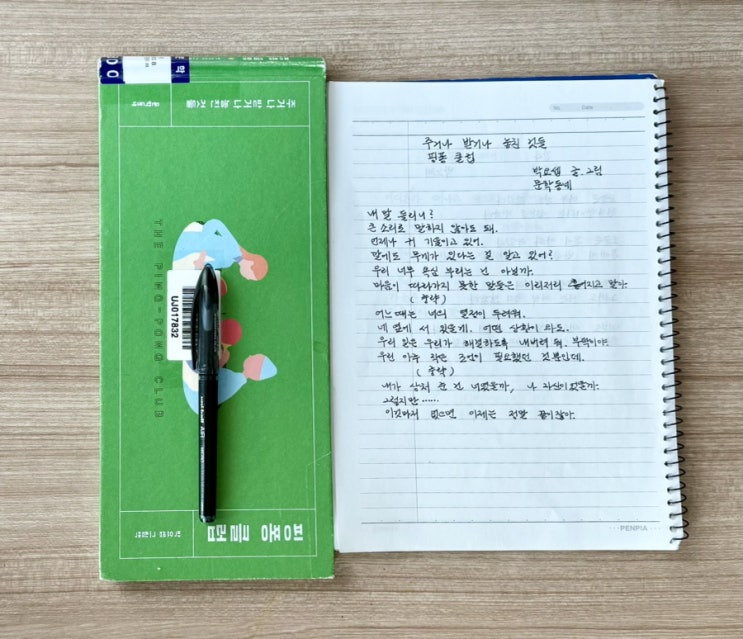 주거나 받거나 놓친 것들
THE PING-PONG CLUB
UJ017832
핑퐁 클럽
No.
Date
주거나 받거나 놓친 것들
핑퐁 클럽
박요셉 글.그림
문학동네
내 말 들리니?
큰 소리로 말하지 않아도 돼.
언제나 귀 기울이고 있어.
말에도 무게가 있다는 걸 알고 있어?
우리 너무 욕심 부리는 건 아닐까.
마음이 따라가지 못한 말들은 이리저리 흩어지고 말아.
(중략)
어느 때는 너의 열정이 두려워.
네 옆에 서 있을게. 어떤 상황이 와도.
우리 일은 우리가 해결하도록 내버려 둬. 부탁이야.
우린 아주 작은 조언이 필요했던 것뿐인데.
(중략)
내가 상처 준 건 너였을까, 나 자신이었을까.
그렇지만……
이것마저 없으면 이제는 정말 끝이잖아.
PENPIA